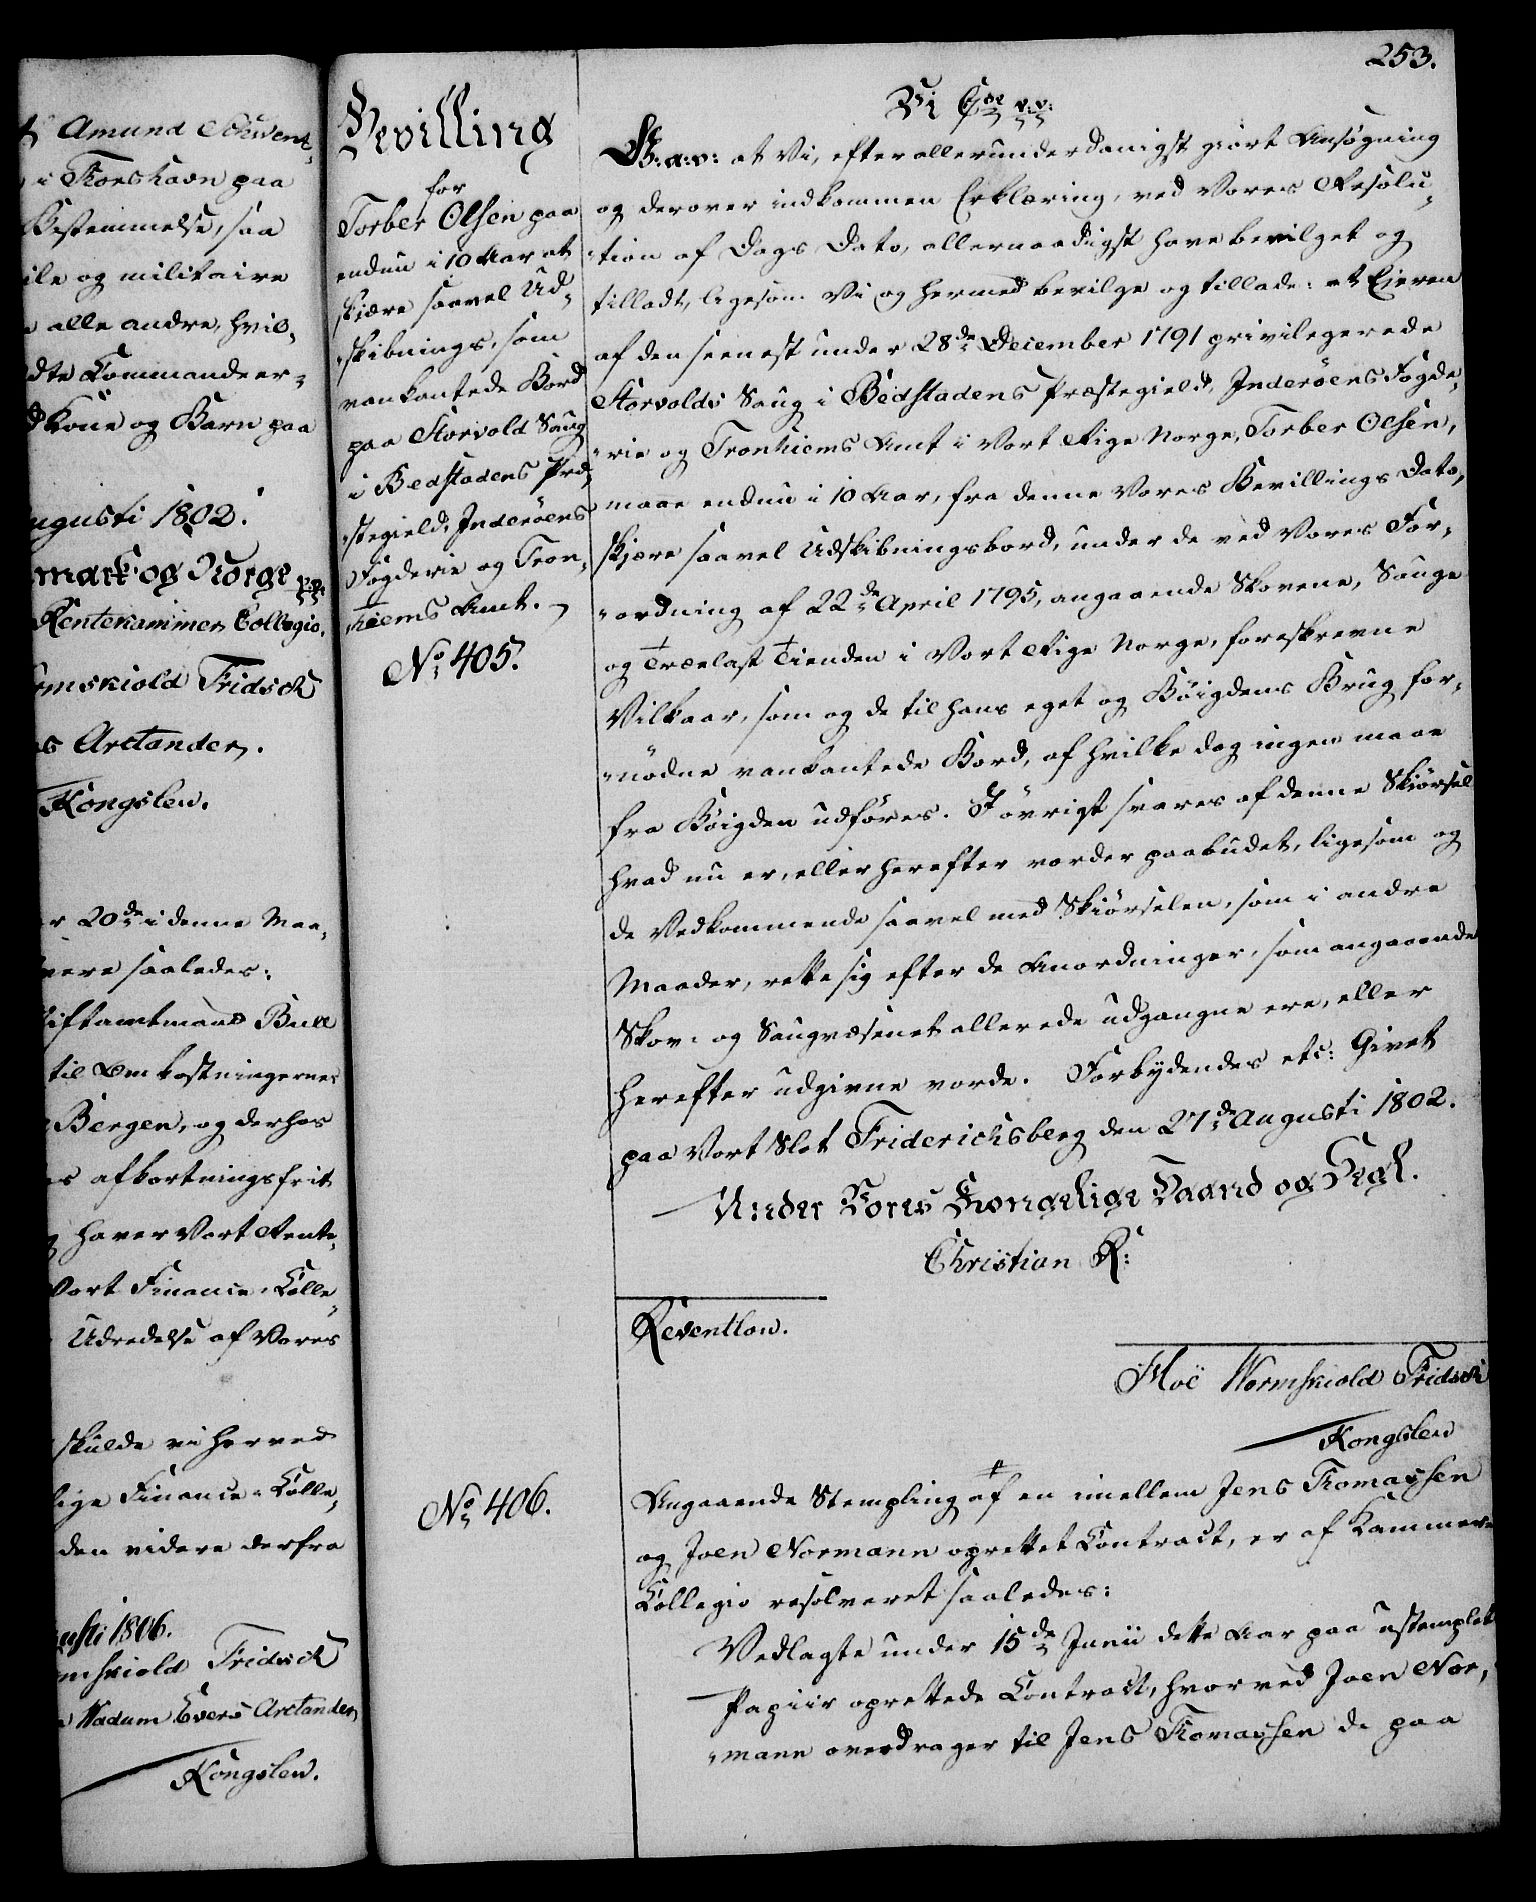 253.
Amund
i Thorshavn paa
Bestemmelse, saa
og militaire
alle andre, hvil-
Commandeer-
Kone og Barn paa
Augusti 1802.
mark og Norge p.p.
Rentekammer Collegio.
rmskiold Fridsch
Arctander.
Kongslew.
20de i denne Maa-
saaledes:
iftamtmand Bull
til Omkostningernes
Bergen, og derhos
afkortningsfrit
haver Vort Rente-
Vort Finance-Colle-
Udredelse af Vores
skulde vi herved
lige Finance-Colle-
den videre derfra
usti 1806.
mskiold Fridsch
Wadum Evers Arctander
Kongslew.
Bevilling
for
Torber Olsen paa
endnu i 10 Aar at
skjære saavel Ud-
skibnings, som
vankantede Bord
paa Storvold Saug
i Bedstadens Præ-
stegield, Inderöens
Fogderie og Tron-
hiems Amt.
No 405.
Vi C 7de p.p.
G.a.v: at Vi, efter allerunderdanigst giort Ansøgning
og derover indkommen Erklæring, ved Vores Resolu-
tion af Dags Dato, allernaadigst have bevilget og
tilladt, ligesom Vi og hermed bevilge og tillade: at Ejeren
af den seenest under 28de December 1791 privilegerede
Storvolds Saug i Bedstadens Præstegield, Inderöens Fogde-
rie og Tronhiems Amt i Vort Rige Norge, Torber Olsen,
maae endnu i 10 Aar, fra denne Vores Bevillings Dato,
skjære saavel Udskibningsbord, under de ved Vores For-
ordning af 22de April 1795, angaaende Skovene, Sauge
og Trælast Tienden i Vort Rige Norge, foreskrevne
Vilkaar, som og de til hans eget og Böigdens Brug for-
nödne vankantede Bord, af hvilke dog ingen maae
fra Böigden udföres. I övrigt svares af denne Skiørsel
hvad nu er, eller herefter vorder paabudet, ligesom og
de Vedkommende saavel med Skiørselen, som i andre
Maader, rette sig efter de Anordninger, som angaaende
Skov- og Saugvæsenet allerede udgangne ere, eller
herefter udgivne vorde. Forbydendes etc: Givet
paa Vort Slot Friderichsberg den 27de Augusti 1802.
Under Vores Kongelige Haand og Segl.
Christian R:
Reventlow.
Moë Wormskiold Fridsch
Kongslew
No 406.
Angaaende Stempling af en imellem Jens Thomassen
og Joen Normann oprettet Contract, er af Kammer-
Collegio resolveret saaledes:
Vedlagte under 15de Junii dette Aar paa ustemplet
Papiir oprettede Contract, hvorved Joen Nor-
mann overdrager til Jens Thomassen de paa